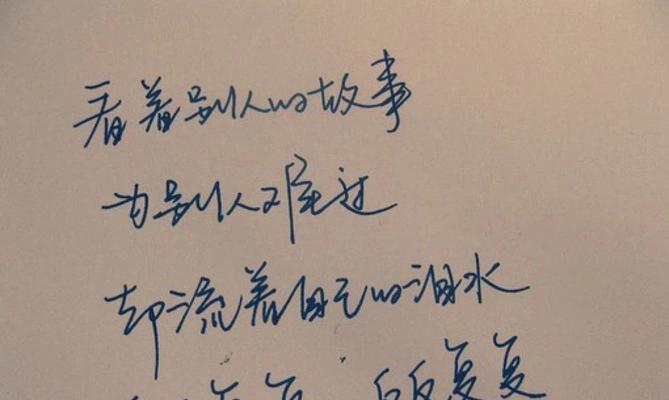 看着别人的故事
为别人难过
却流着自己的泪水
反反复复